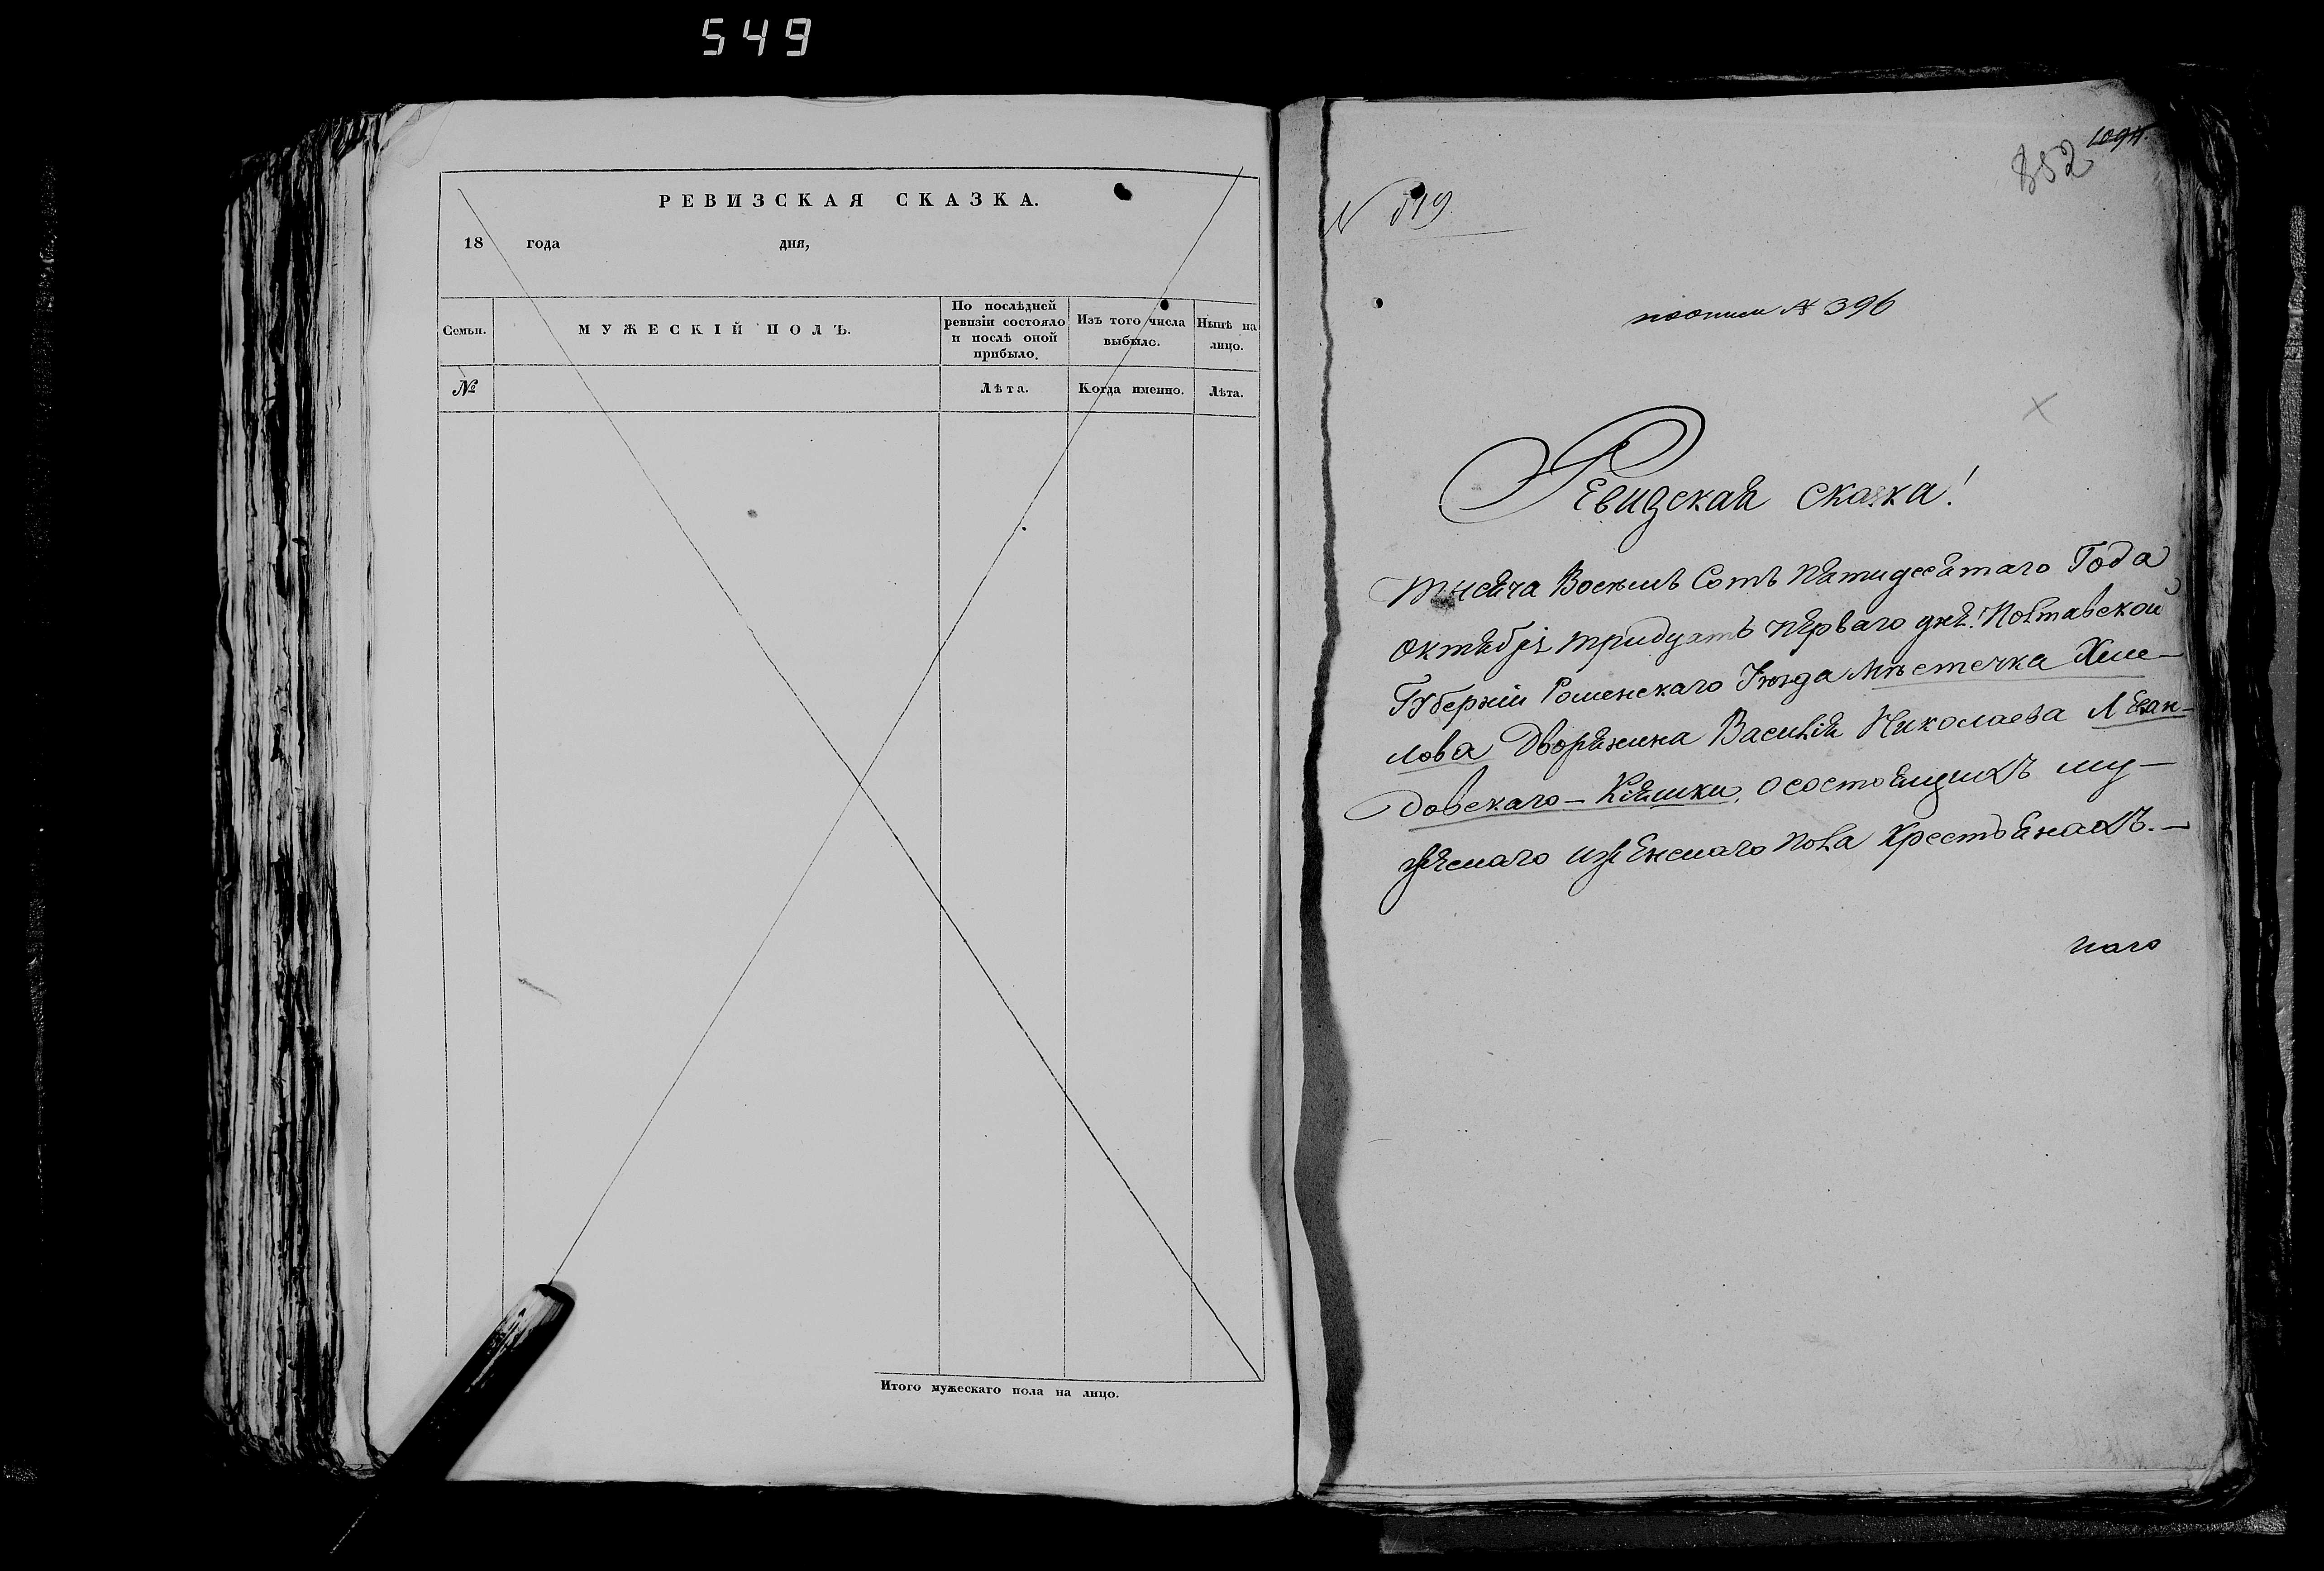 549
РЕВИЗСКАЯ СКАЗКА.
18 года дня,
Семьи.
МУЖЕСКІЙ ПОЛЪ.
По послѣдней
ревизіи состояло
и послѣ оной
прибыло.
Изъ того числа
выбыло.
Нынѣ на
лицо.
№
Лѣта.
Когда именно.
Лѣта.
Итого мужескаго пола на лицо.
852
1094.
N 519
поописи № 396
Ревизская сказка!
Тысяча Восемь Сотъ Пятидесятаго Года
Октября тридцать перваго дня. Полтавской
Губерніи Роменскаго Уѣзда Мѣстечка Хме-
лова Дворянина Василія Николаева
довскаго - Кіяшки, о состоящихъ му-
жескаго и женскаго пола Крестьянахъ. -